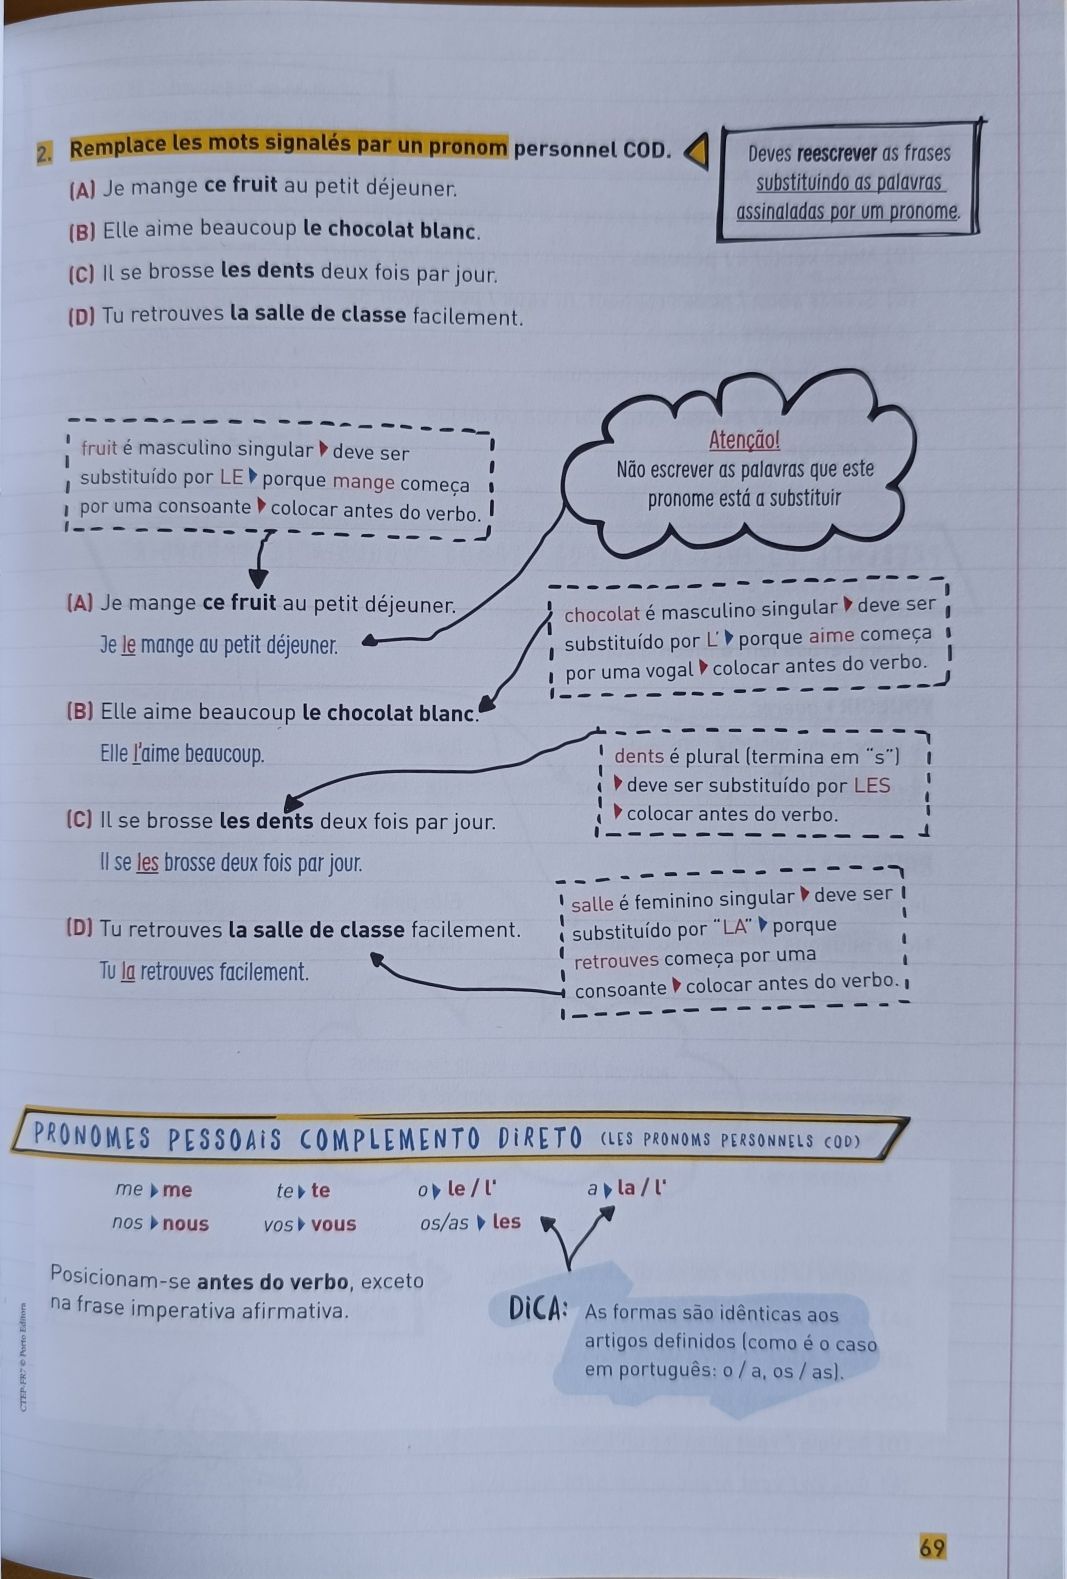 2. Remplace les mots signalés par un pronom personnel COD.
(A) Je mange ce fruit au petit déjeuner.
(B) Elle aime beaucoup le chocolat blanc.
(C) Il se brosse les dents deux fois par jour.
(D) Tu retrouves la salle de classe facilement.
Deves reescrever as frases
substituindo as palavras
assinaladas por um pronome.
fruit é masculino singular deve ser
substituído por LE porque mange começa
por uma consoante colocar antes do verbo.
Atenção!
Não escrever as palavras que este
pronome está a substituir
(A) Je mange ce fruit au petit déjeuner.
Je le mange au petit déjeuner.
chocolat é masculino singular deve ser
substituído por L' porque aime começa
por uma vogal colocar antes do verbo.
(B) Elle aime beaucoup le chocolat blanc.
Elle l'aime beaucoup.
dents é plural (termina em "s")
deve ser substituído por LES
colocar antes do verbo.
(C) Il se brosse les dents deux fois par jour.
Il se les brosse deux fois par jour.
salle é feminino singular deve ser
substituído por "LA" porque
retrouves começa por uma
consoante colocar antes do verbo.
(D) Tu retrouves la salle de classe facilement.
Tu la retrouves facilement.
PRONOMES PESSOAIS COMPLEMENTO DIRETO (LES PRONOMS PERSONNELS COD)
me me te te o le / l' a la / l'
nos nous vos vous os/as les
Posicionam-se antes do verbo, exceto
na frase imperativa afirmativa.
DICA: As formas são idênticas aos
artigos definidos (como é o caso
em português: o / a, os / as).
CTEP-FR7 © Porto Editora
69